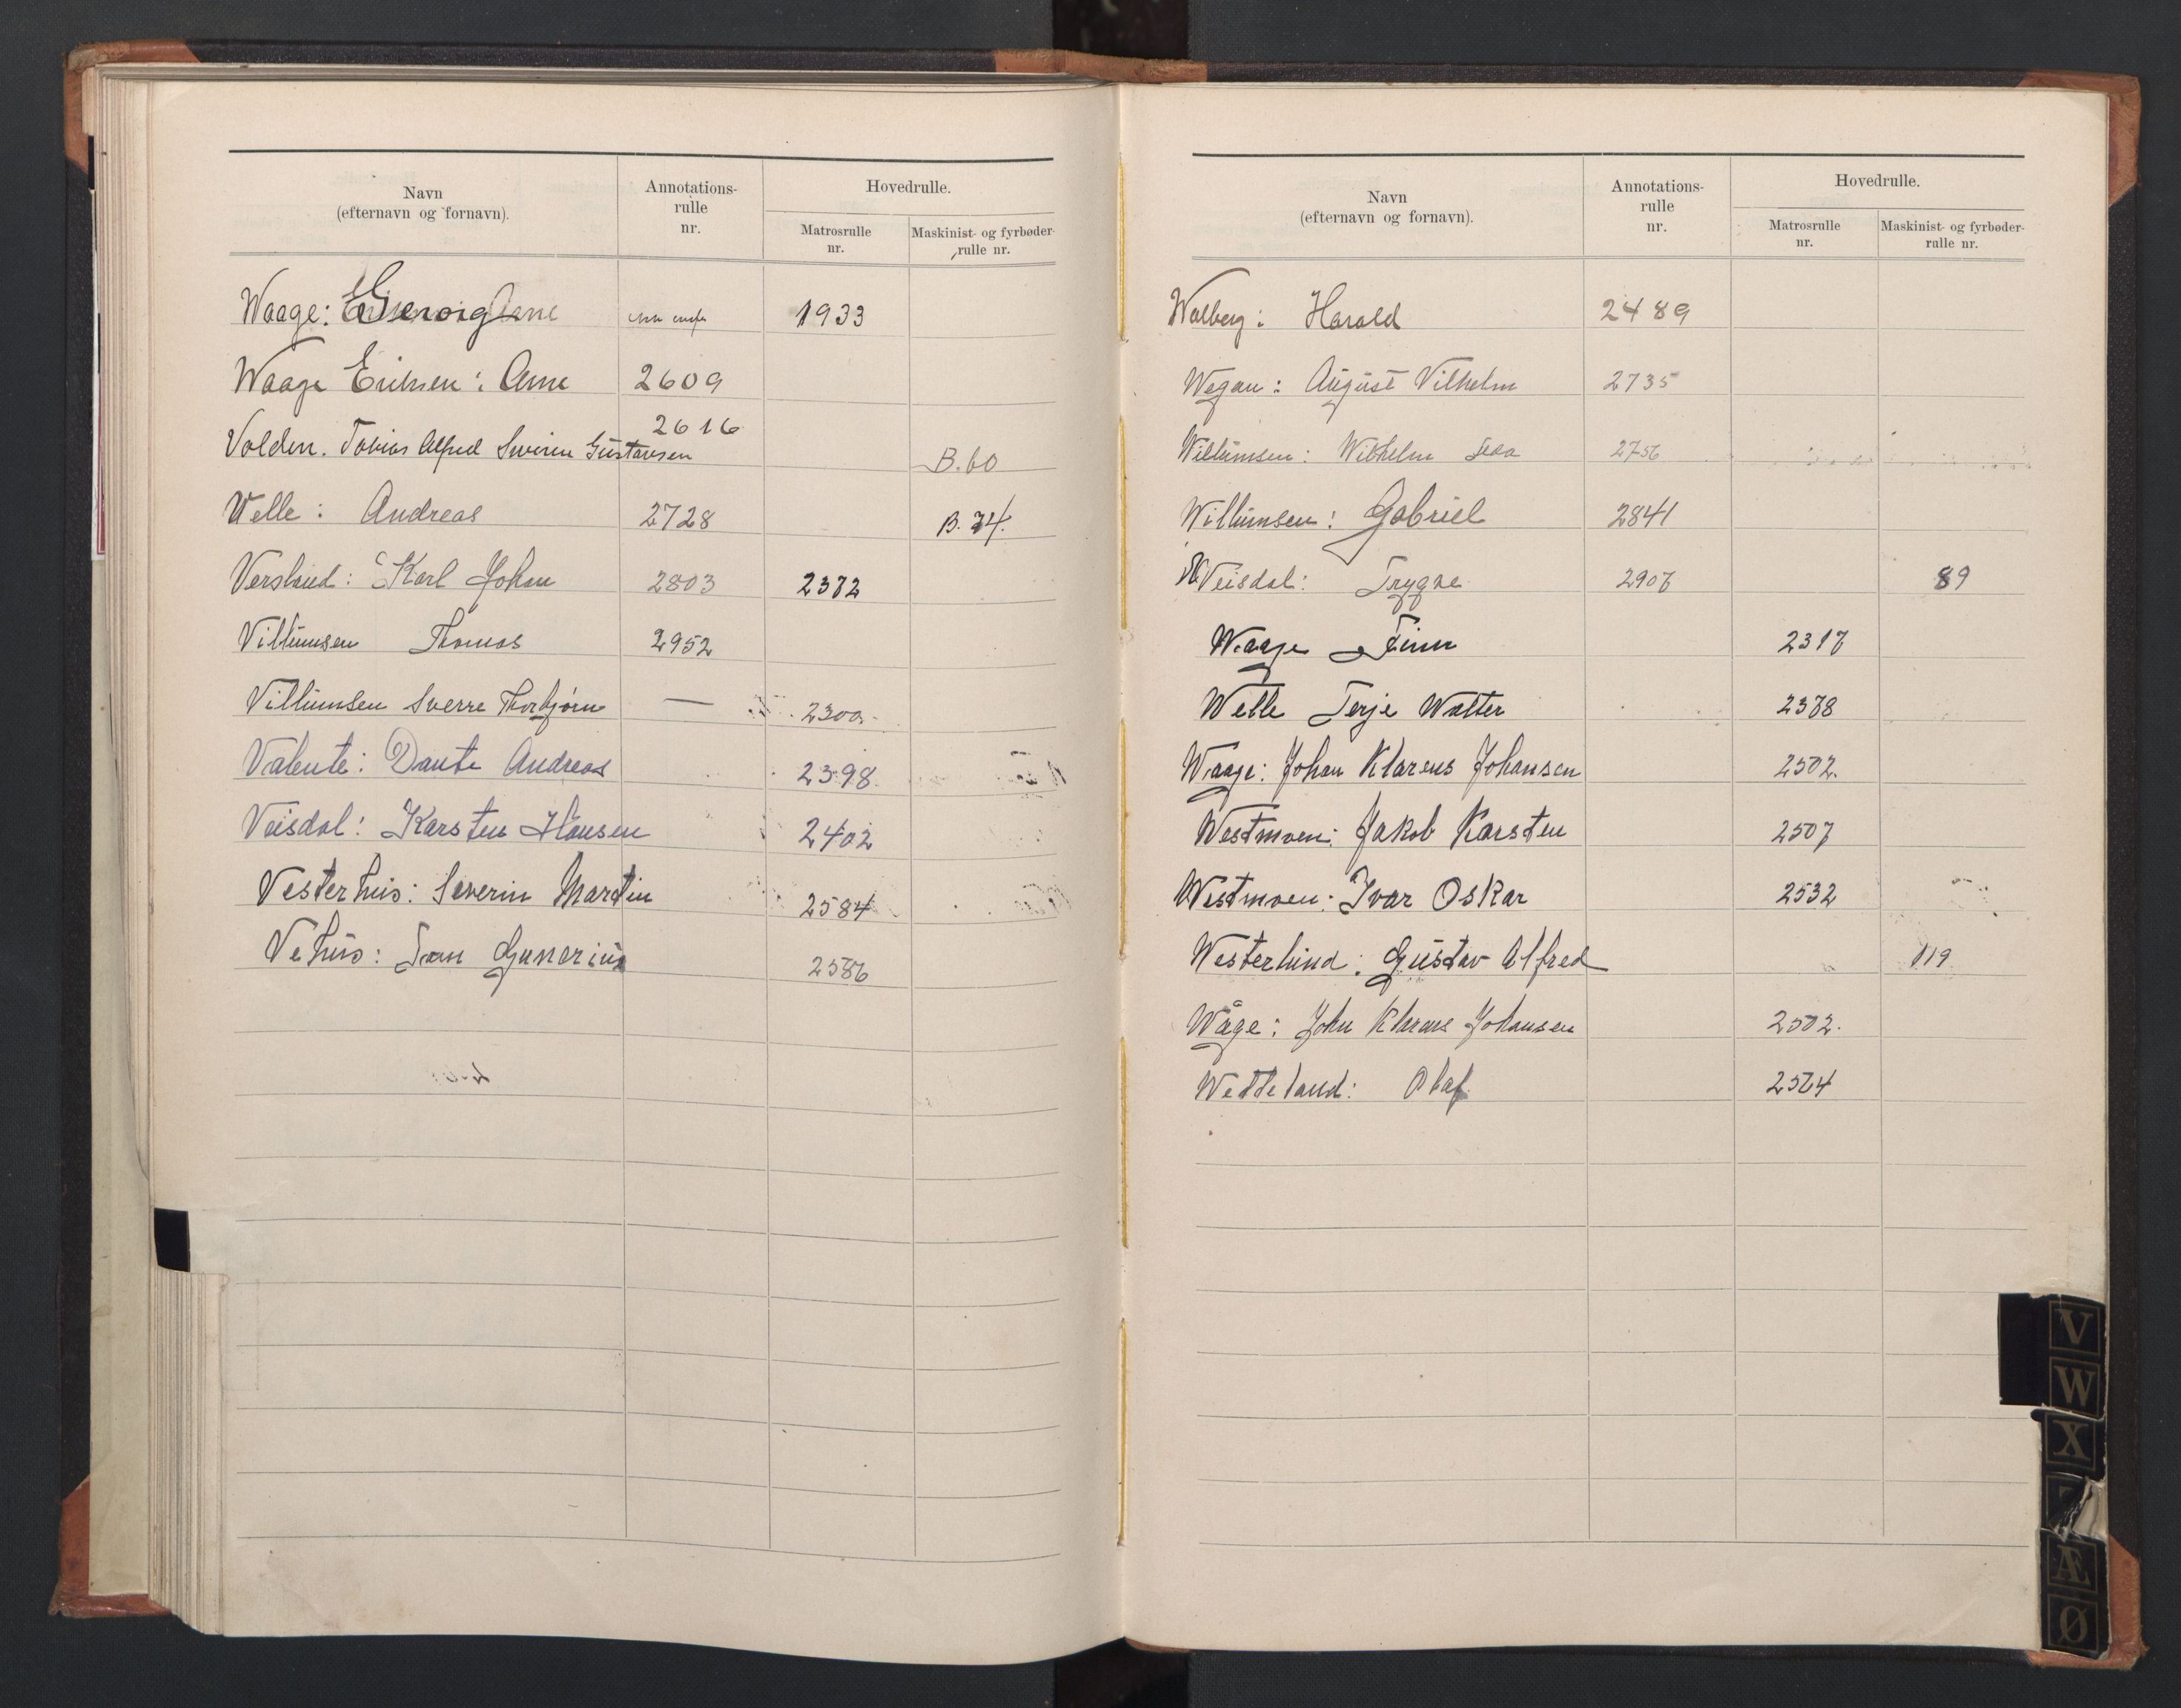 Navn
(efternavn og fornavn).
Annotations-
rulle
nr.
Hovedrulle.
Matrosrulle
nr.
Maskinist- og fyrbøder-
rulle nr.
Waage: 1933
Waage Eriksen: Arne 2609
Volden. Tobias Alfred Gustavsen 2616 B. 60
Welle: Andreas 2728 B. 74.
Versland: Karl Johan 2803 2372
Villumsen Thomas 2952
Villumsen Sverre Thorbjørn — 2300.
Valente: Dante Andreas 2398.
Veisdal: Karsten Hansen 2402
Vesterhus: Severin Martin 2584
Vehus: Gunerius 2586
Navn
(efternavn og fornavn).
Annotations-
rulle
nr.
Hovedrulle.
Matrosrulle
nr.
Maskinist- og fyrbøder-
rulle nr.
Walberg: Harald 2489
Wegan: August Vilhelm 2735
Willumsen: Wilhelm 2756
Willumsen: Gabriel 2841
Veisdal: Trygve 2907 89
Waage Finn 2317
Welle Terje Walter 2378
Waage: Johan Klarens Johansen 2502.
Westmoen: Jakob Karsten 2507
Westmoen: Ivar Oskar 2532
Westerlund: Gustav Alfred 119
Wåge: John Klarens Johansen 2502.
Wetteland: Olaf 2564
V
W
X
Æ
Ø